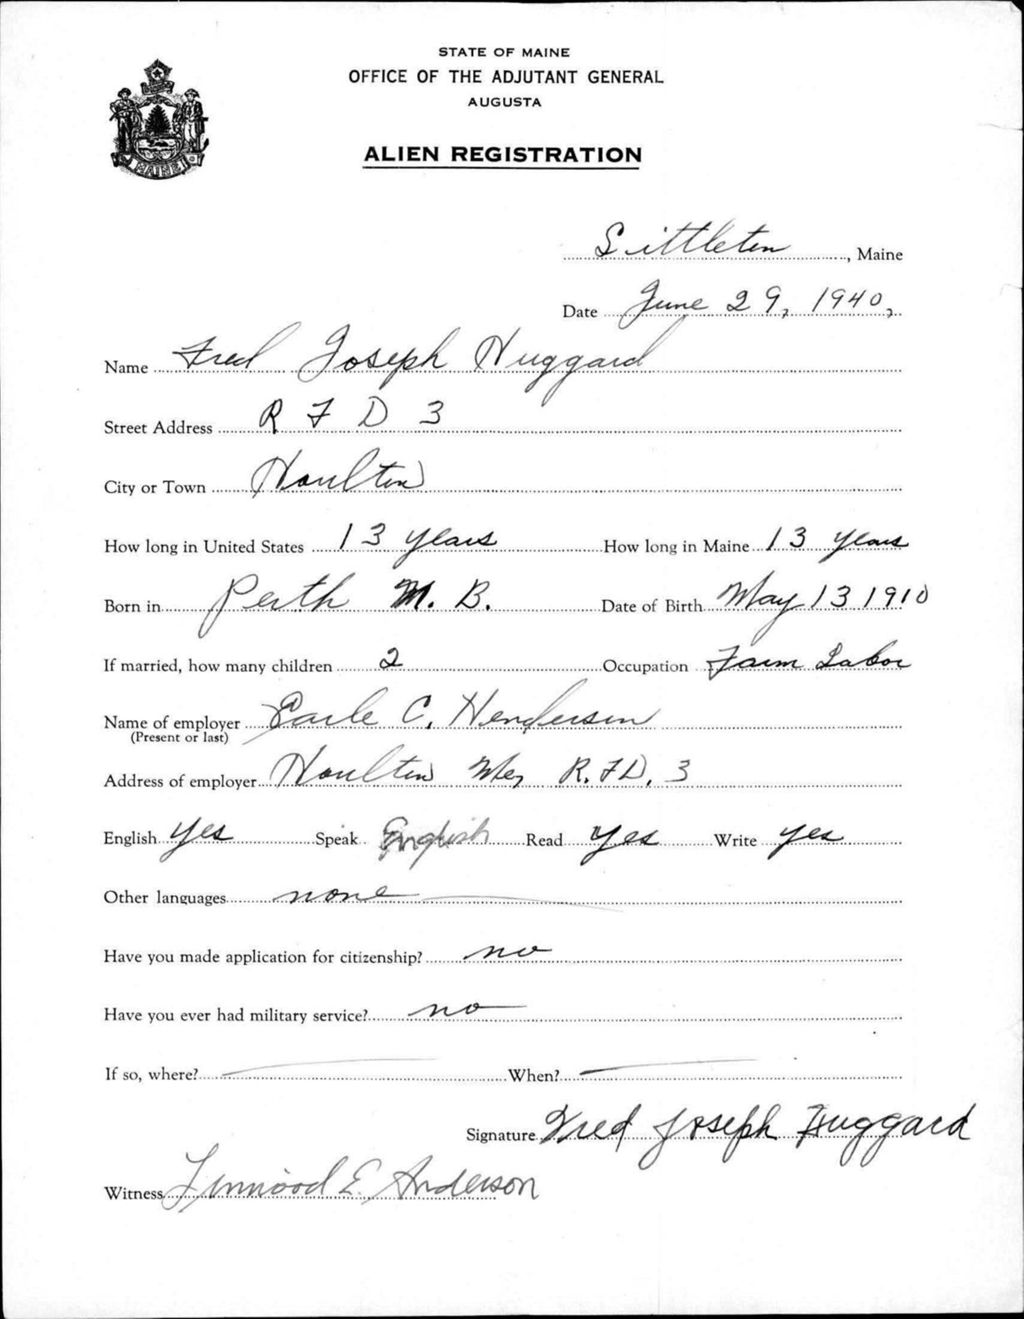 STATE OF MAINE
OFFICE OF THE ADJUTANT GENERAL
AUGUSTA
ALIEN REGISTRATION
MAINE
Littleton, Maine
Date June 29, 1940,
Name Fred Joseph Huggard
Street Address R F D 3
City or Town Houlton
How long in United States 13 years How long in Maine 13 years
Born in Perth N. B. Date of Birth May 13 1910
If married, how many children 2 Occupation Farm Labor
Name of employer Earle C. Henderson
(Present or last)
Address of employer Houlton Me, R.F.D. 3
English yes Speak English Read yes Write yes
Other languages none
Have you made application for citizenship? no
Have you ever had military service? no
If so, where? When?
Signature Fred Joseph Huggard
Witness Linwood E. Anderson